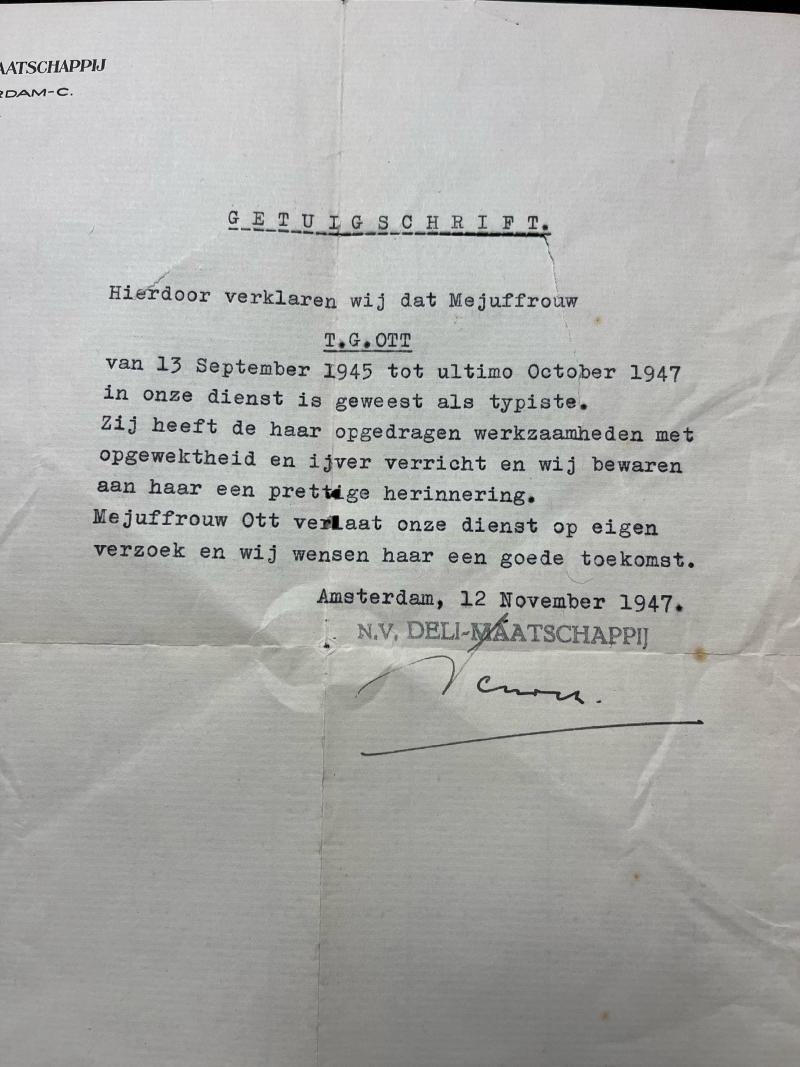 AATSCHAPPIJ
RDAM-C.
GETUIGSCHRIFT.
Hierdoor verklaren wij dat Mejuffrouw
T.G.OTT
van 13 September 1945 tot ultimo October 1947
in onze dienst is geweest als typiste.
Zij heeft de haar opgedragen werkzaamheden met
opgewektheid en ijver verricht en wij bewaren
aan haar een prettige herinnering.
Mejuffrouw Ott verlaat onze dienst op eigen
verzoek en wij wensen haar een goede toekomst.
Amsterdam, 12 November 1947.
N.V. DELI-MAATSCHAPPIJ